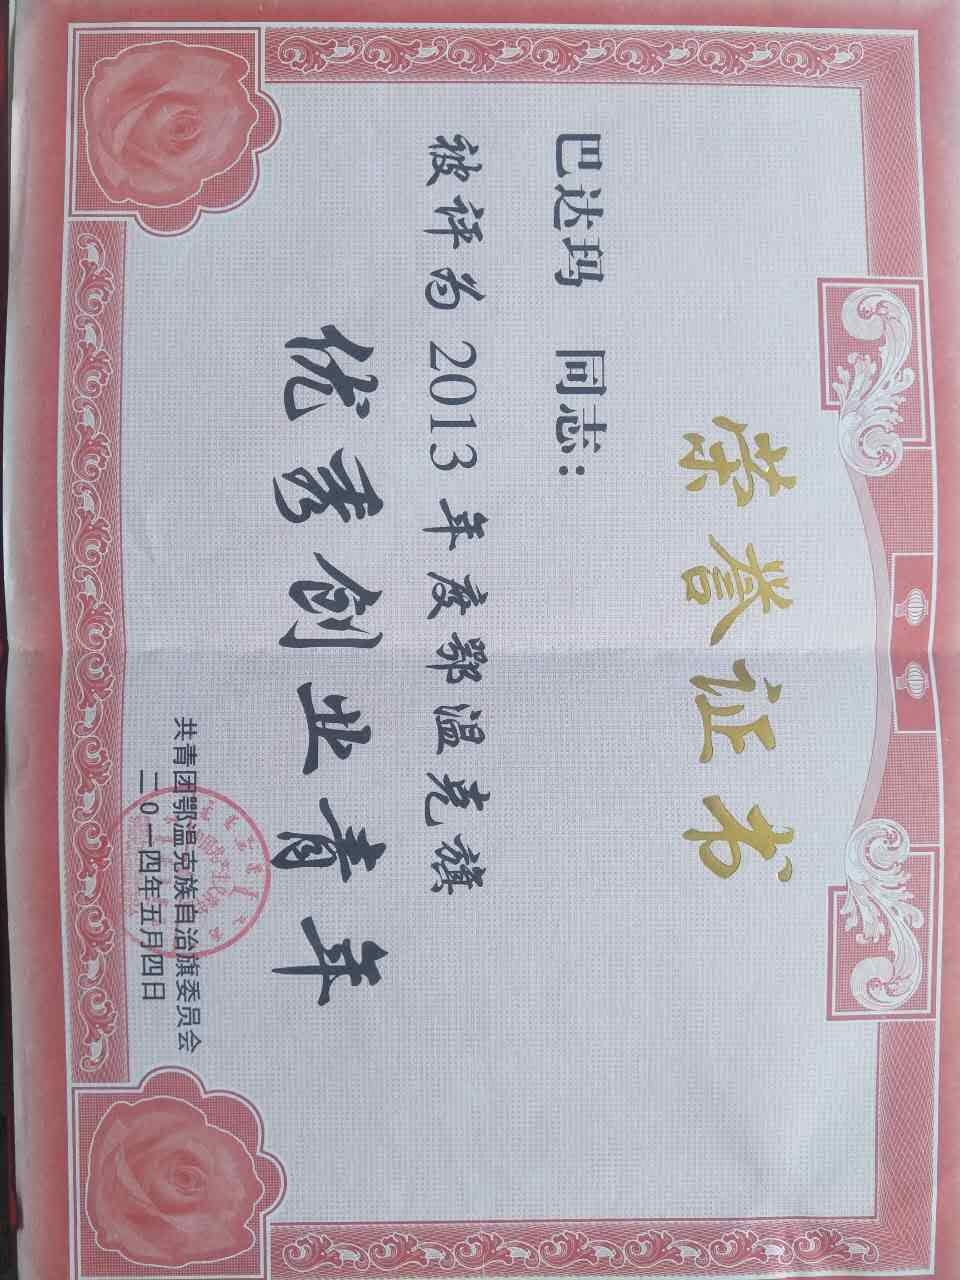 荣誉证书
巴达玛 同志:
被评为2013年度鄂温克旗
优秀创业青年
共青团鄂温克族自治旗委员会
二0一四年五月四日